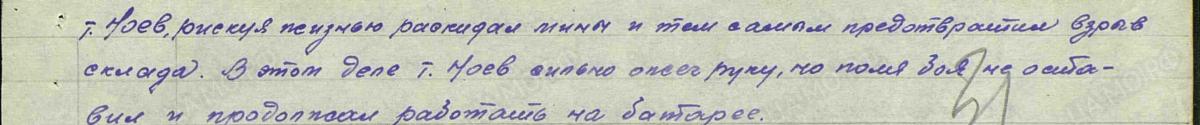 т. Чоев, рискуя жизнью раскидал мины и тем самым предотвратил взрыв
склада. В этом деле т. Чоев сильно ожег руку, но поля боя не оста-
вил и продолжал работать на батарее.